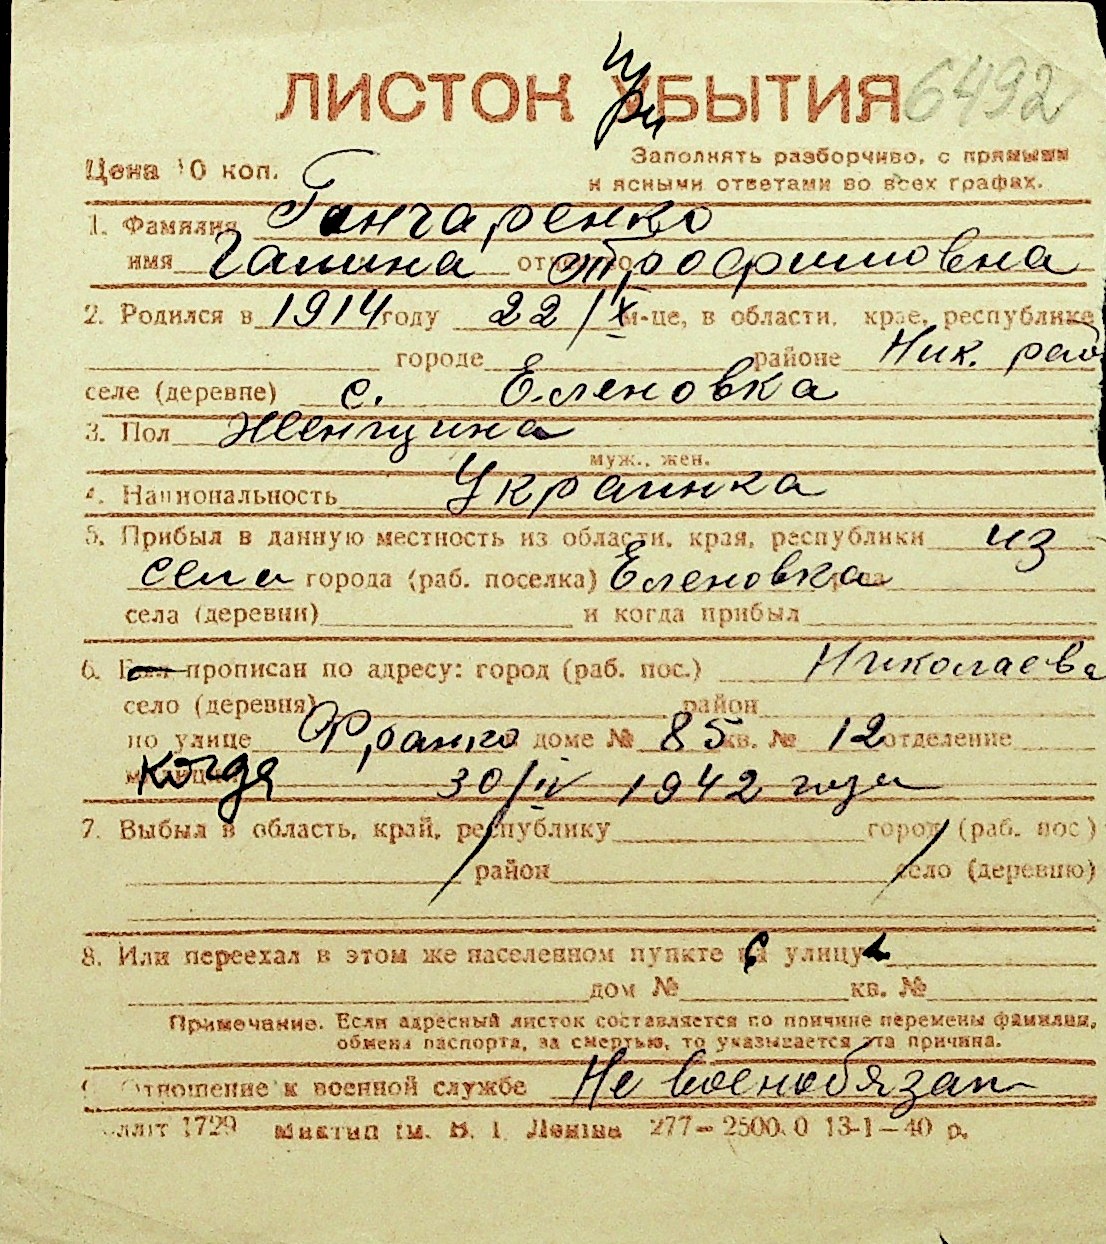 ЛИСТОК УБЫТИЯ при 6492
Цена 10 коп. Заполнять разборчиво, с прямыми
и ясными ответами во всех графах.
1. Фамилия Ганчаренко
имя Галина отчество Трофимовна
2. Родился в 1914 году 22/X м-це, в области, крае, республике
городе районе Ник. рай
селе (деревне) с. Еленовка
3. Пол Женщина
муж., жен.
4. Национальность Украинка
5. Прибыл в данную местность из области, края, республики из
села города (раб. поселка) Еленовка
села (деревни) и когда прибыл
6. Был прописан по адресу: город (раб. пос.) Николаева
село (деревня) район
по улице Франко в доме № 85 кв. № 12 отделение
милиции когда 30/IV 1942 года
7. Выбыл в область, край, республику город (раб. пос)
район село (деревню)
8. Или переехал в этом же населенном пункте с улицы
дом № кв. №
Примечание. Если адресный листок составляется по причине перемены фамилии,
обмена паспорта, за смертью, то указывается эта причина.
Отношение к военной службе Не военобязан
1729 Миктип ім. В. І. Леніна 277—2500.0 13-1—40 р.